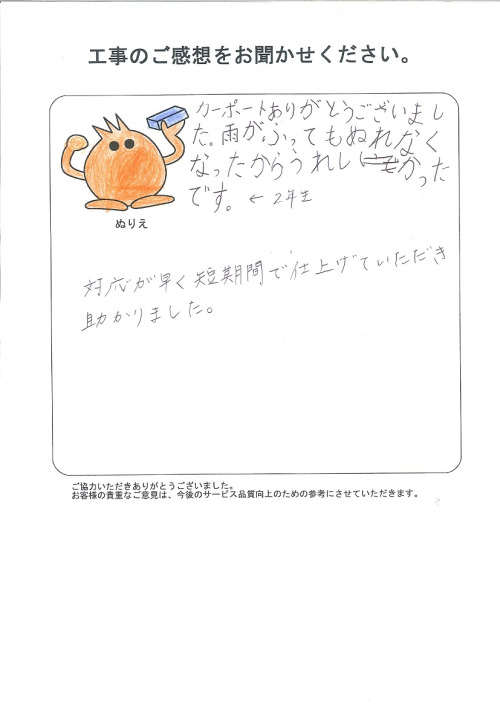 工事のご感想をお聞かせください。
カーポートありがとうございまし
た。雨がふってもぬれなく
なったからうれしかった
です。 ← 2年生
ぬりえ
対応が早く短期間で仕上げていただき
助かりました。
ご協力いただきありがとうございました。
お客様の貴重なご意見は、今後のサービス品質向上のための参考にさせていただきます。